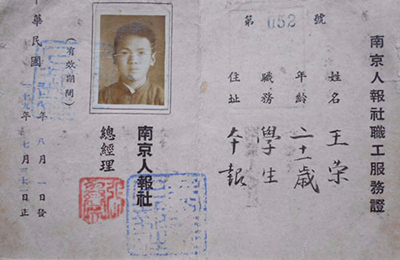 南京人報社職工服務證
第 052 號
姓名 王榮
年齡 二十一歲
職務 學生
住址 本報
南京人報社
總經理
(有效期間)
華民國
年八月一日發
年七月 日止